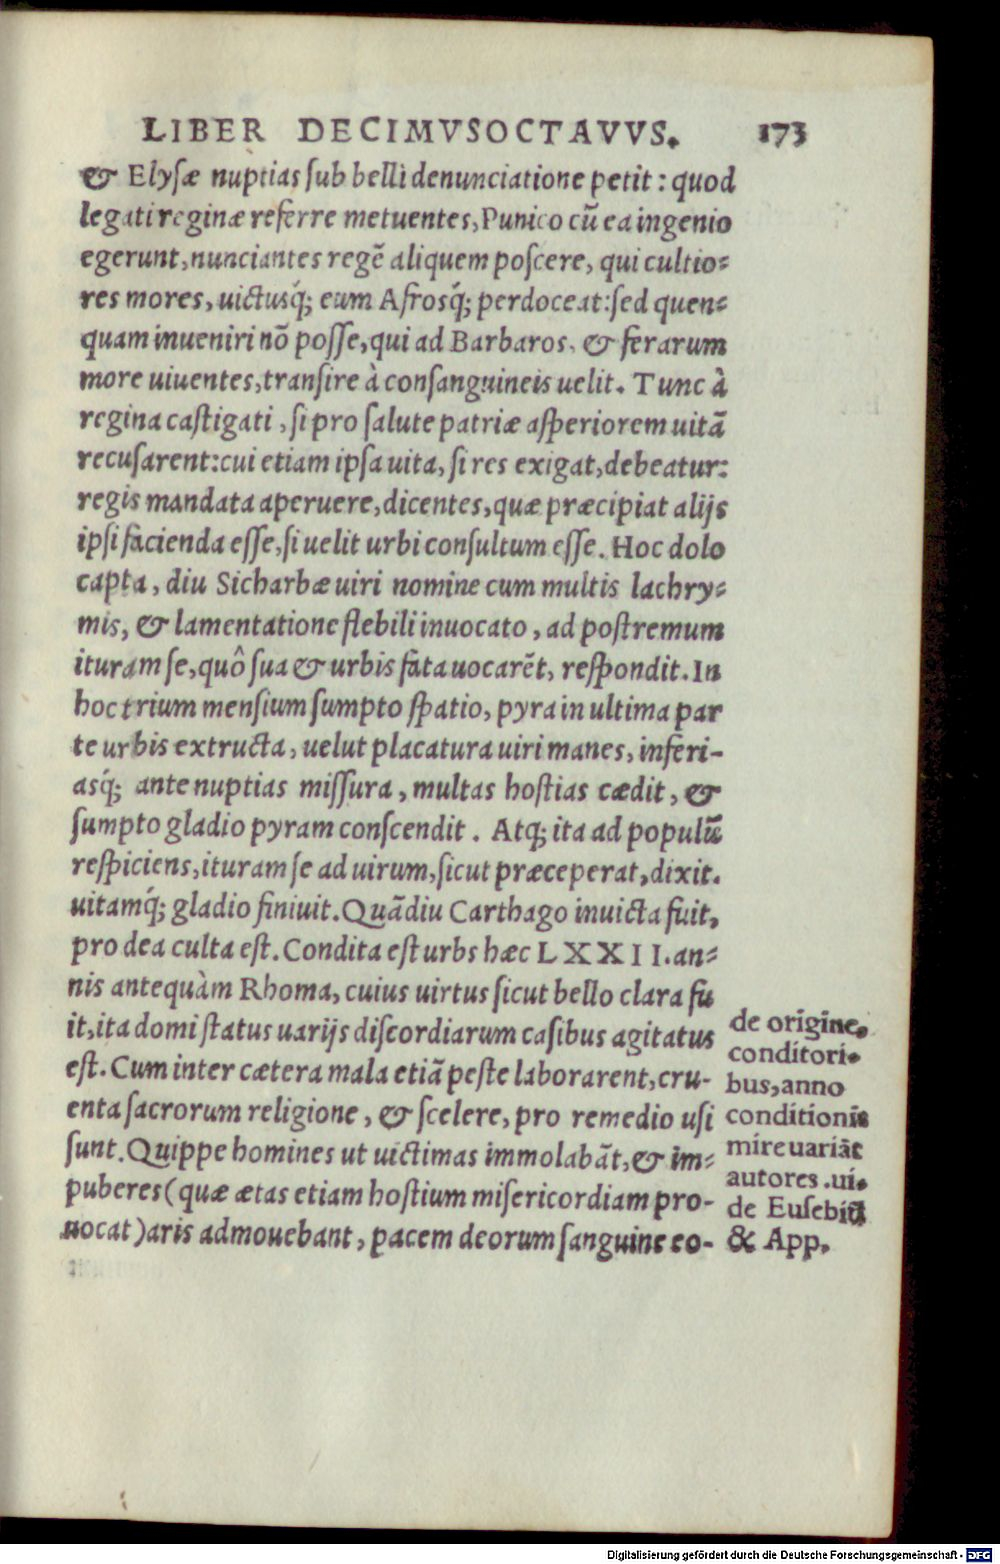 LIBER DECIMVSOCTAVVS. 173
& Elysæ nuptias sub belli denunciatione petit: quod
legati reginæ referre metuentes, Punico cũ ea ingenio
egerunt, nunciantes regẽ aliquem poscere, qui cultio-
res mores, uictusq́; eum Afrosq́; perdoceat: sed quen-
quam inueniri nõ posse, qui ad Barbaros, & ferarum
more uiuentes, transire à consanguineis uelit. Tunc à
regina castigati, si pro salute patriæ asperiorem uitã
recusarent: cui etiam ipsa uita, si res exigat, debeatur:
regis mandata aperuere, dicentes, quæ præcipiat alijs
ipsi facienda esse, si uelit urbi consultum esse. Hoc dolo
capta, diu Sicharbæ uiri nomine cum multis lachry-
mis, & lamentatione flebili inuocato, ad postremum
ituram se, quô sua & urbis fata uocarẽt, respondit. In
hoc trium mensium sumpto spatio, pyra in ultima par
te urbis extructa, uelut placatura uiri manes, inferi-
asq́; ante nuptias missura, multas hostias cædit, &
sumpto gladio pyram conscendit. Atq; ita ad populũ
respiciens, ituram se ad uirum, sicut præceperat, dixit.
uitamq́; gladio finiuit. Quãdiu Carthago inuicta fuit,
pro dea culta est. Condita est urbs hæc LXXII. an-
nis antequàm Rhoma, cuius uirtus sicut bello clara fu
it, ita domi status uarijs discordiarum casibus agitatus
est. Cum inter cætera mala etiã peste laborarent, cru-
enta sacrorum religione, & scelere, pro remedio usi
sunt. Quippe homines ut uictimas immolabãt, & im-
puberes (quæ ætas etiam hostium misericordiam pro-
uocat) aris admouebant, pacem deorum sanguine eo-
de origine,
conditori-
bus, anno
conditionis
mire uariãt
autores. ui-
de Eusebiũ
& App.
Digitalisierung gefördert durch die Deutsche Forschungsgemeinschaft - DFG